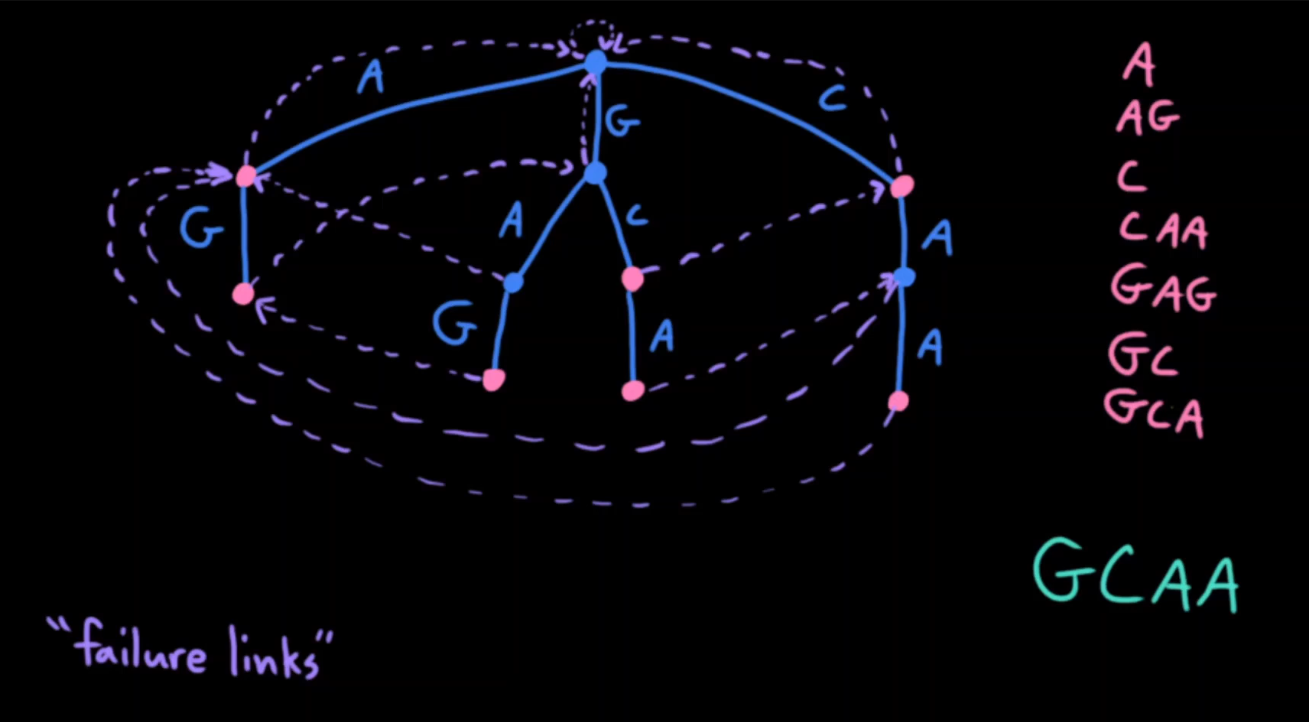 A
C
G
G
A
C
A
G
A
A
A
AG
C
CAA
GAG
GC
GCA
GCAA
"failure links"